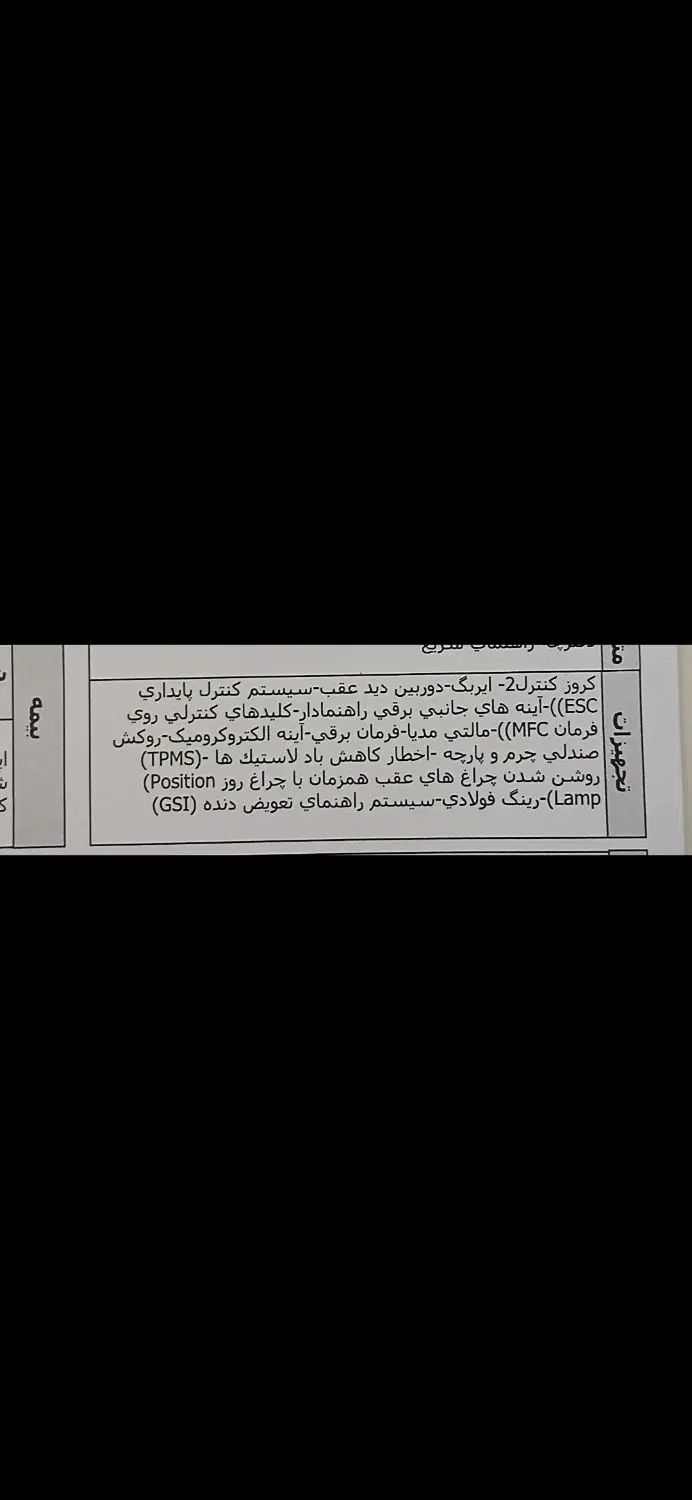 تجهیزات
کروز کنترل2- ایربگ-دوربین دید عقب-سیستم کنترل پایداري
ESC))-آینه هاي جانبي برقي راهنمادار-کلیدهاي کنترلي روي
فرمان MFC))-مالتي مدیا-فرمان برقي-آینه الکتروکرومیک-روکش
صندلي چرم و پارچه -اخطار کاهش باد لاستیك ها -(TPMS)
روشن شدن چراغ هاي عقب همزمان با چراغ روز Position)
Lamp)-رینگ فولادي-سیستم راهنماي تعویض دنده (GSI)
بیمه